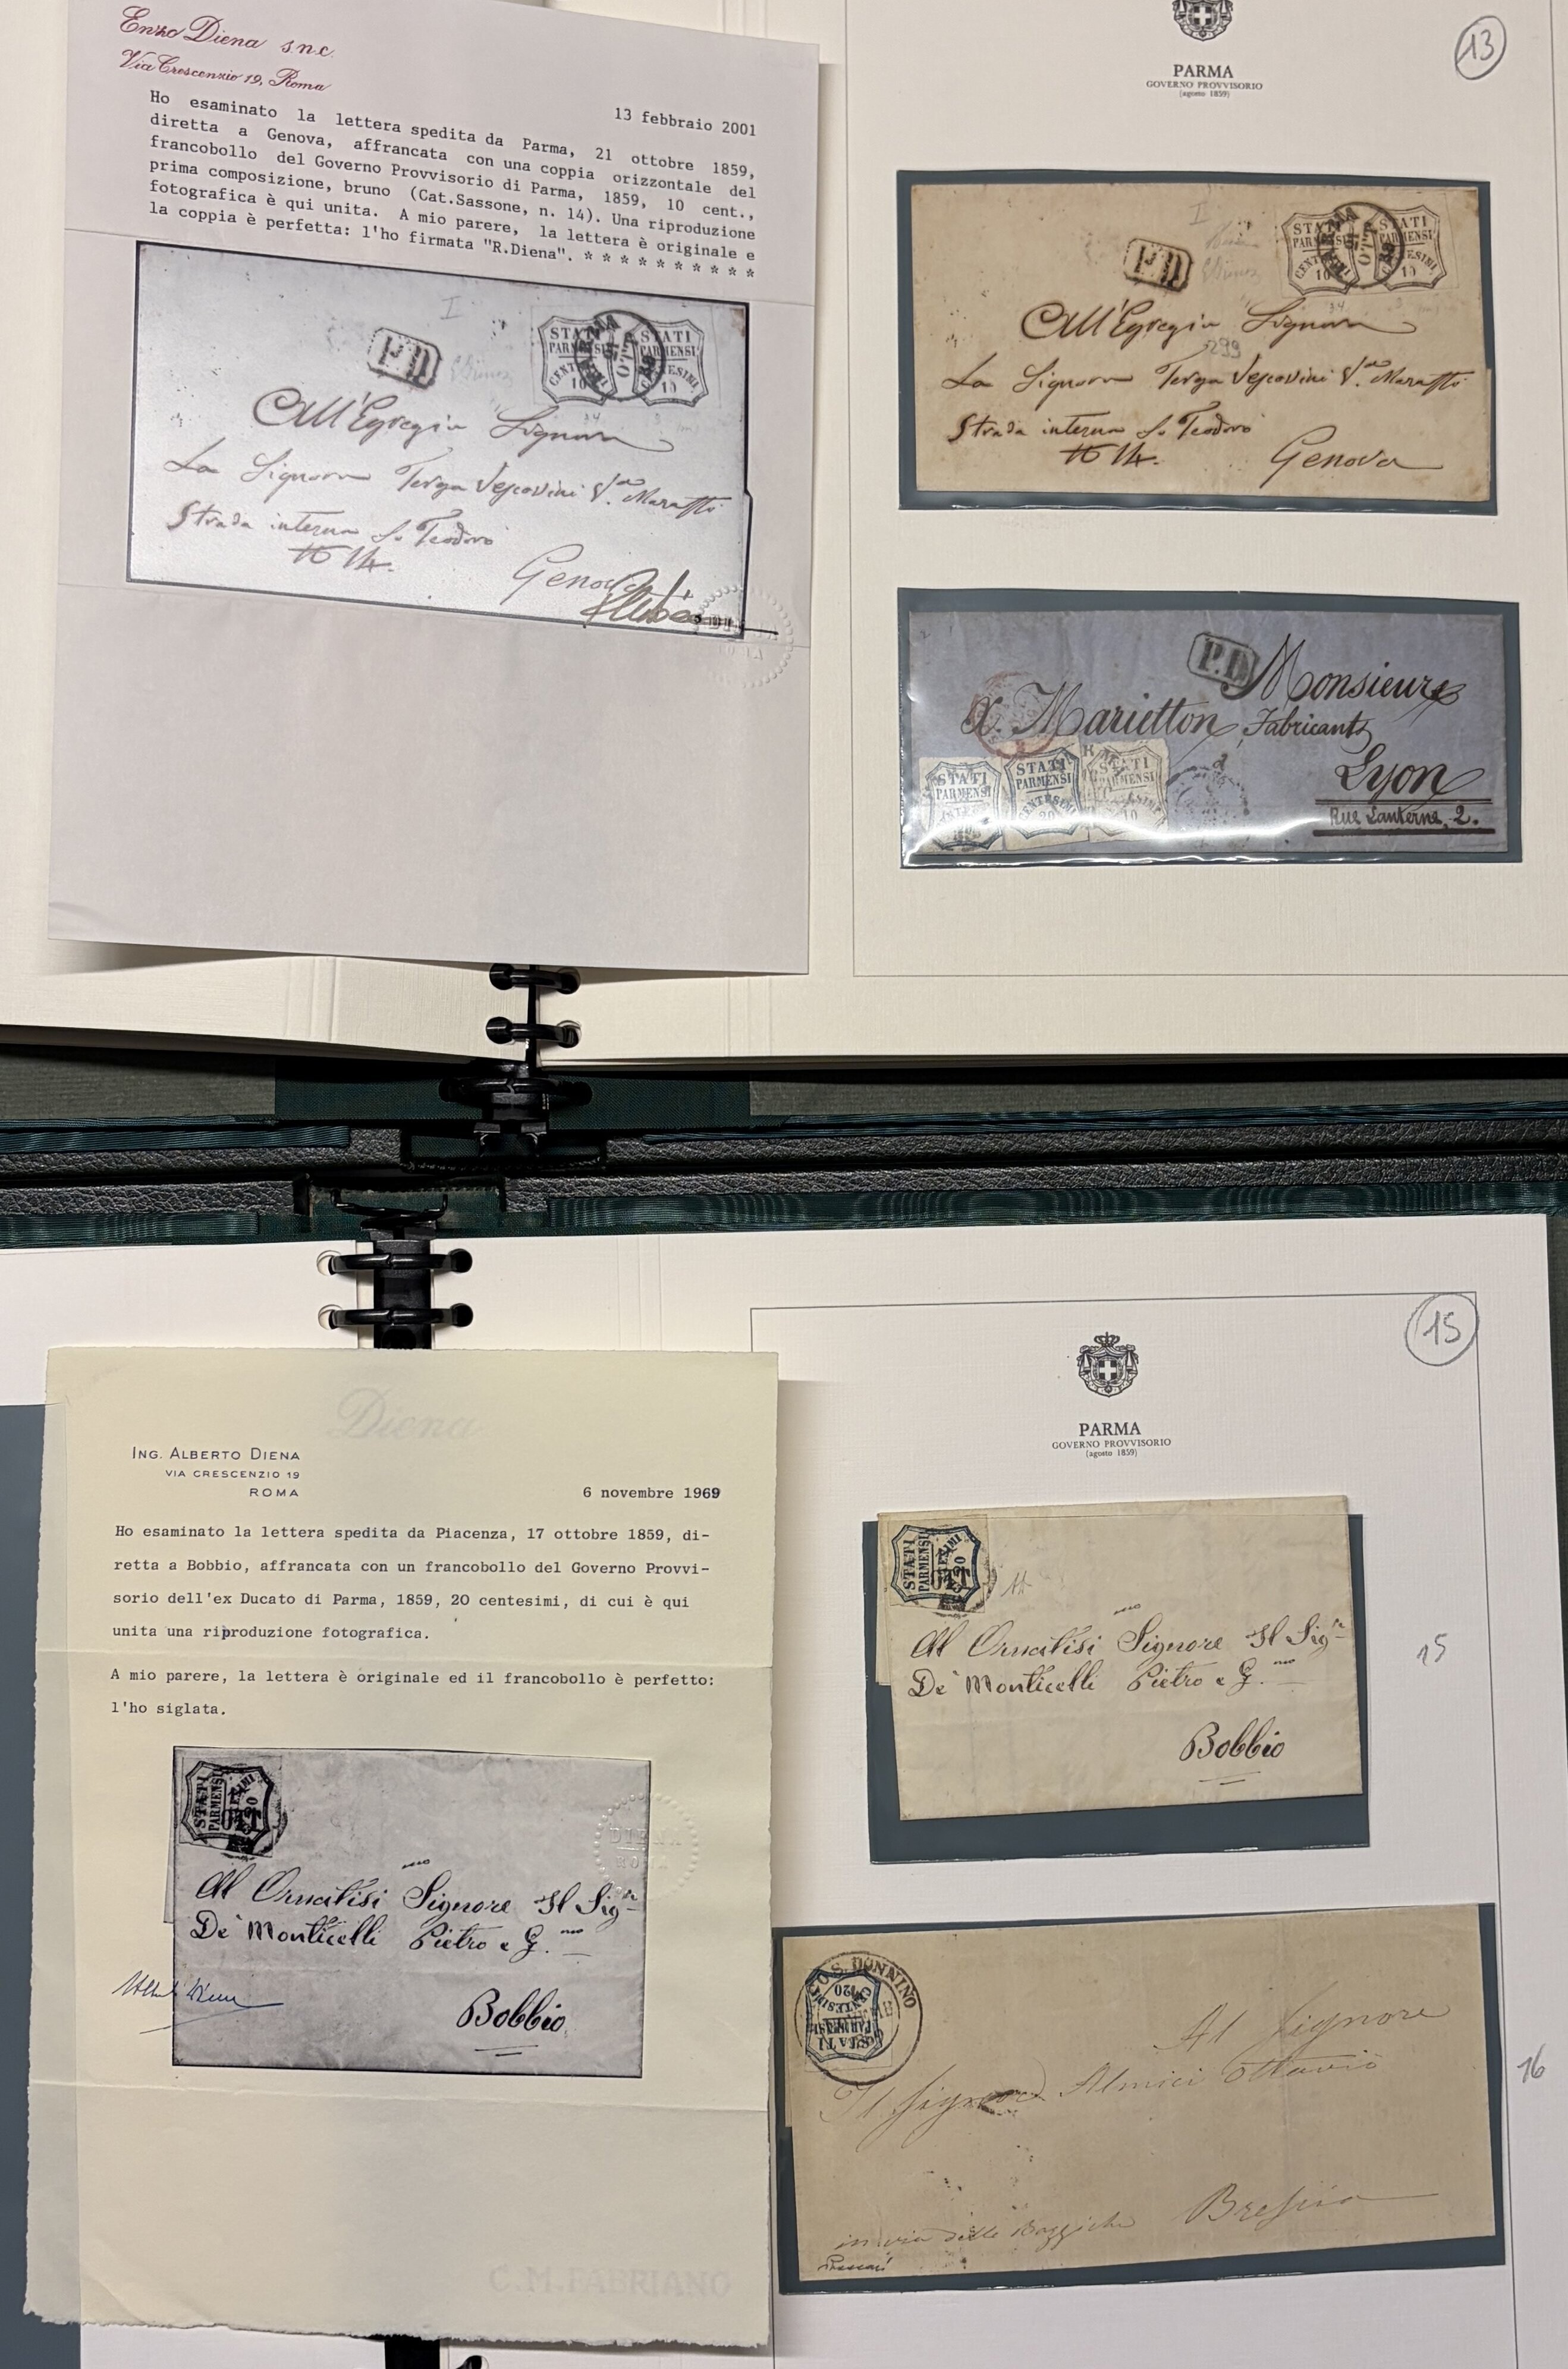 Enzo Diena s.n.c.
Via Crescenzio 19, Roma
13 febbraio 2001
Ho esaminato la lettera spedita da Parma, 21 ottobre 1859,
diretta a Genova, affrancata con una coppia orizzontale del
francobollo del Governo Provvisorio di Parma, 1859, 10 cent.,
prima composizione, bruno (Cat.Sassone, n. 14). Una riproduzione
fotografica è qui unita. A mio parere, la lettera è originale e
la coppia è perfetta: l'ho firmata "R.Diena". * * * * * * * * * *
I
P.D.
STATI
PARMENSI
10
STATI
PARMENSI
10
All'Egregia Signora
La Signora Teresa Vescovini
Strada interna S. Teodoro
Genova
DIENA
ROMA
13
PARMA
GOVERNO PROVVISORIO
(agosto 1859)
I
P.D.
STATI
PARMENSI
10
STATI
PARMENSI
10
All'Egregia Signora
299
La Signora Teresa Vescovini
Strada interna S. Teodoro
Genova
P.D.
Monsieur
X. Marietton Fabricant
à
Lyon
Rue Lanterne, 2.
STATI
PARMENSI
STATI
PARMENSI
CENTESIMI
20
STATI
PARMENSI
10
Diena
ING. ALBERTO DIENA
VIA CRESCENZIO 19
ROMA
6 novembre 1969
Ho esaminato la lettera spedita da Piacenza, 17 ottobre 1859, di-
retta a Bobbio, affrancata con un francobollo del Governo Provvi-
sorio dell'ex Ducato di Parma, 1859, 20 centesimi, di cui è qui
unita una riproduzione fotografica.
A mio parere, la lettera è originale ed il francobollo è perfetto:
l'ho siglata.
STATI
PARMENSI
20
OTT
DIENA
ROMA
Al Ornatisi Signore Il Sig
De Monticelli Pietro e G.
Bobbio
C.M.FABRIANO
15
PARMA
GOVERNO PROVVISORIO
(agosto 1859)
STATI
PARMENSI
20
OTT
Al Ornatisi Signore Il Sig
De Monticelli Pietro e G.
Bobbio
15
BORGO S. DONNINO
STATI
PARMENSI
CENTESIMI
20
Al Signore
Il Signore Almici Ottavio
Brescia
in via delle
16